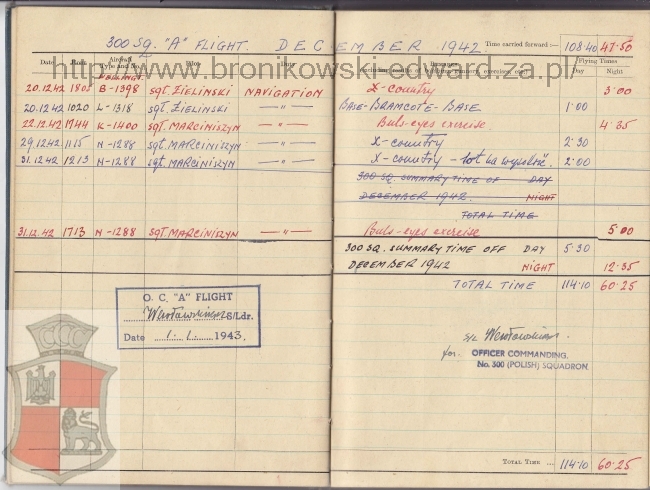 300 SQ. "A" FLIGHT. DECEMBER 1942. Time carried forward:— 108·40 47·50
Date Hour Aircraft Type and No. Pilot Duty Flying Times
Day Night
http://www.bronikowski-edward.za.pl/
20.12.42 1805 B-1398 sgt. ZIELINSKI NAVIGATION X-country 3·00
20.12.42 1020 L-1318 sgt. ZIELINSKI —"— BASE-BRAMCOTE-BASE 1·00
22.12.42 1744 K-1400 sgt. MARCINISZYN —"— Buls-eyes exercise. 4·35
29.12.42 1115 N-1288 sgt. MARCINISZYN —"— X-country 2·30
31.12.42 1213 N-1288 sgt. MARCINISZYN —"— X-country - lot na wysokość. 2·00
300 SQ. SUMMARY TIME OF DAY
DECEMBER 1942. NIGHT
TOTAL TIME
31.12.42 1713 N-1288 sgt. MARCINISZYN —"— Buls-eyes exercise 5·00
300 SQ. SUMMARY TIME OFF DAY 5·30
DECEMBER 1942 NIGHT 12·35
TOTAL TIME 114·10 60·25
O. C. "A" FLIGHT
S/Ldr.
Date 1.1. 1943.
S/L
for OFFICER COMMANDING,
No. 300 (POLISH) SQUADRON.
CCC
TOTAL TIME ... 114·10 60·25